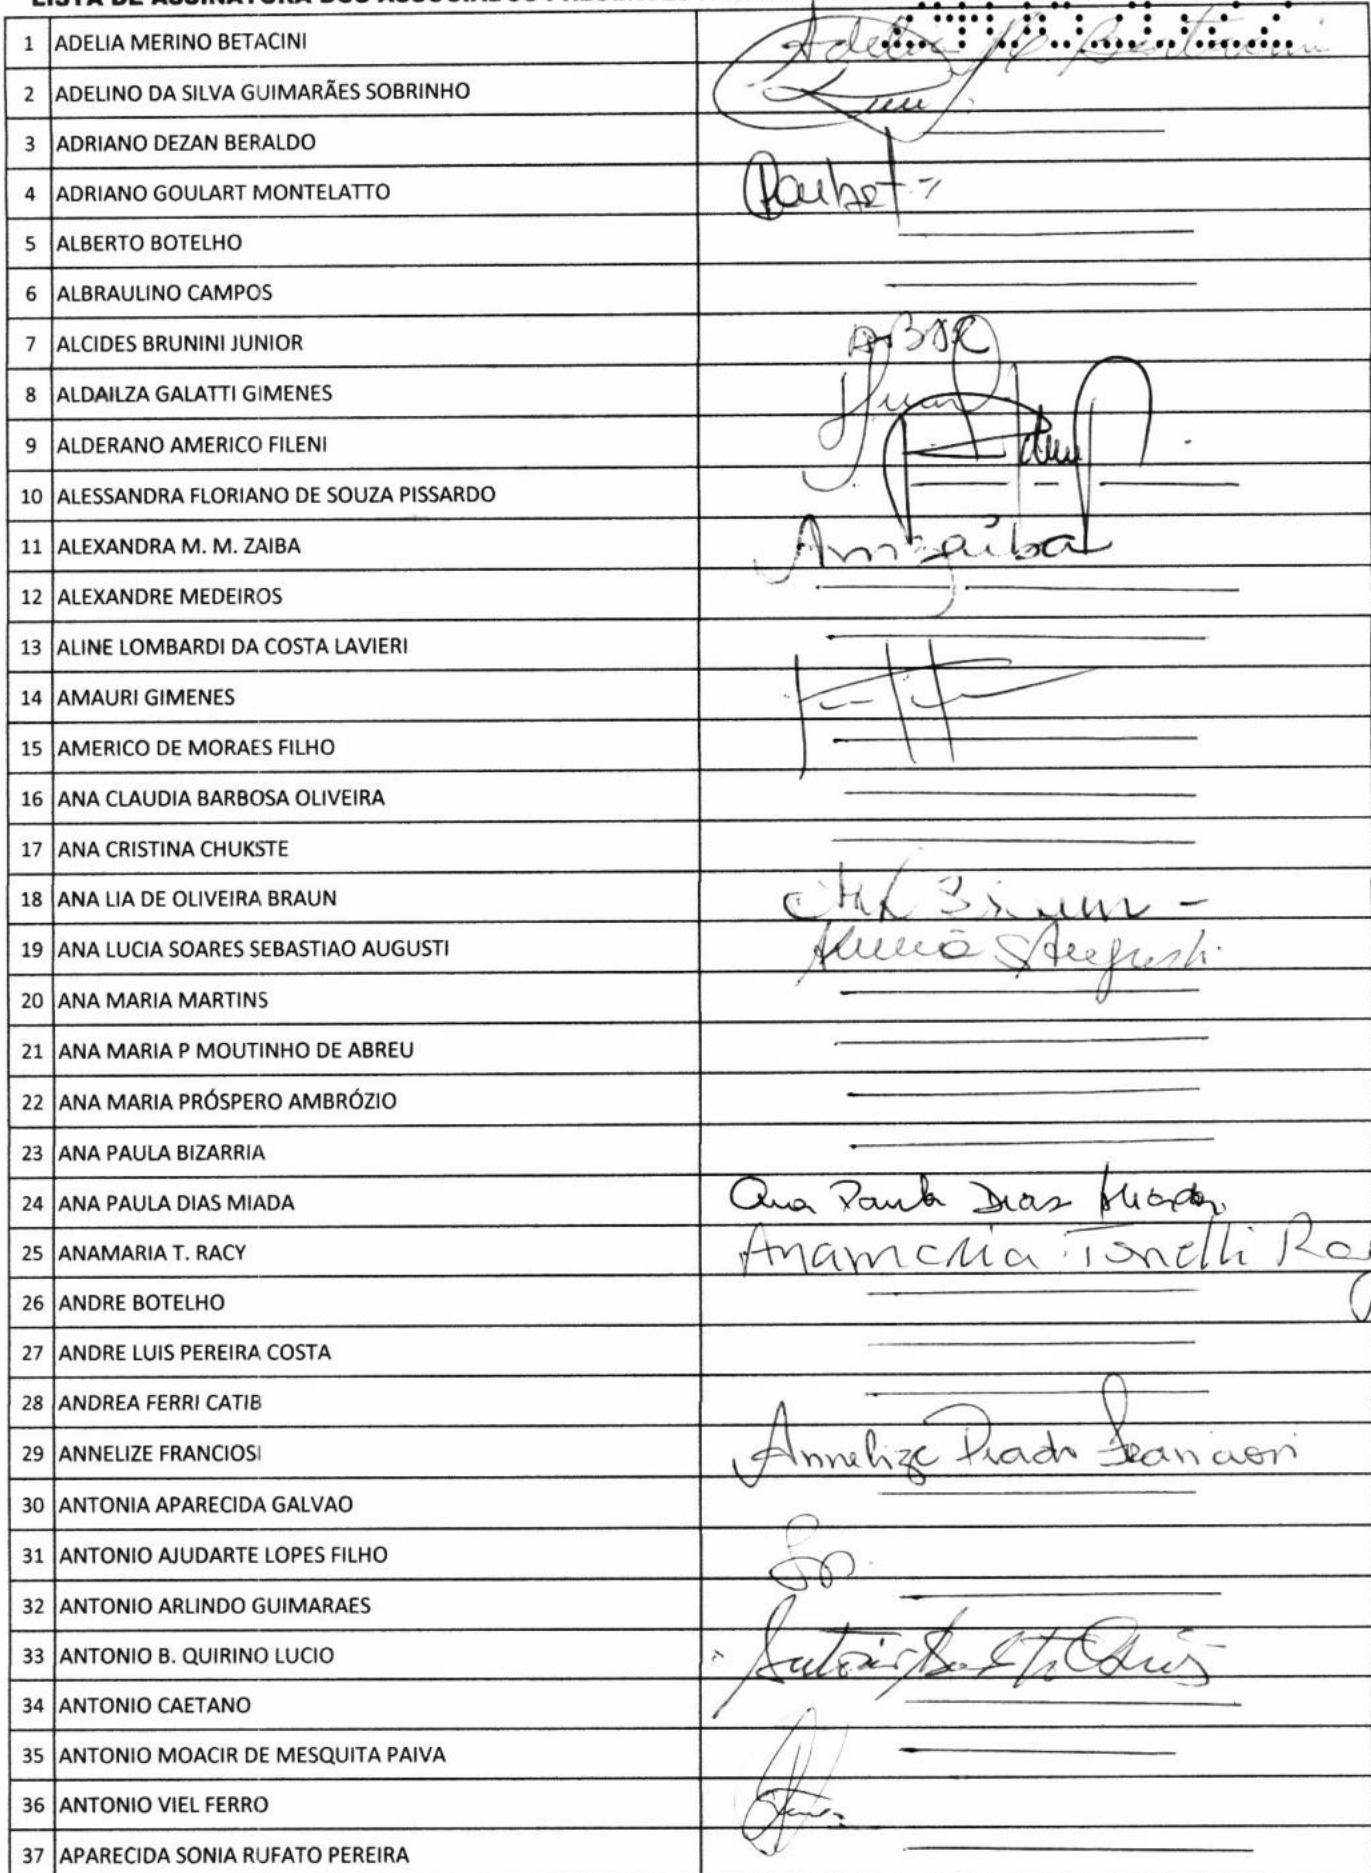 LISTA DE ASSINATURA DOS ASSOCIADOS
1 ADELIA MERINO BETACINI
2 ADELINO DA SILVA GUIMARÃES SOBRINHO
3 ADRIANO DEZAN BERALDO
4 ADRIANO GOULART MONTELATTO
5 ALBERTO BOTELHO
6 ALBRAULINO CAMPOS
7 ALCIDES BRUNINI JUNIOR
8 ALDAILZA GALATTI GIMENES
9 ALDERANO AMERICO FILENI
10 ALESSANDRA FLORIANO DE SOUZA PISSARDO
11 ALEXANDRA M. M. ZAIBA
12 ALEXANDRE MEDEIROS
13 ALINE LOMBARDI DA COSTA LAVIERI
14 AMAURI GIMENES
15 AMERICO DE MORAES FILHO
16 ANA CLAUDIA BARBOSA OLIVEIRA
17 ANA CRISTINA CHUKSTE
18 ANA LIA DE OLIVEIRA BRAUN
19 ANA LUCIA SOARES SEBASTIAO AUGUSTI
20 ANA MARIA MARTINS
21 ANA MARIA P MOUTINHO DE ABREU
22 ANA MARIA PRÓSPERO AMBRÓZIO
23 ANA PAULA BIZARRIA
24 ANA PAULA DIAS MIADA Ana Paula Dias Miada
25 ANAMARIA T. RACY Anamaria Tonelli Racy
26 ANDRE BOTELHO
27 ANDRE LUIS PEREIRA COSTA
28 ANDREA FERRI CATIB
29 ANNELIZE FRANCIOSI Annelize Prado Franciosi
30 ANTONIA APARECIDA GALVAO
31 ANTONIO AJUDARTE LOPES FILHO
32 ANTONIO ARLINDO GUIMARAES
33 ANTONIO B. QUIRINO LUCIO
34 ANTONIO CAETANO
35 ANTONIO MOACIR DE MESQUITA PAIVA
36 ANTONIO VIEL FERRO
37 APARECIDA SONIA RUFATO PEREIRA